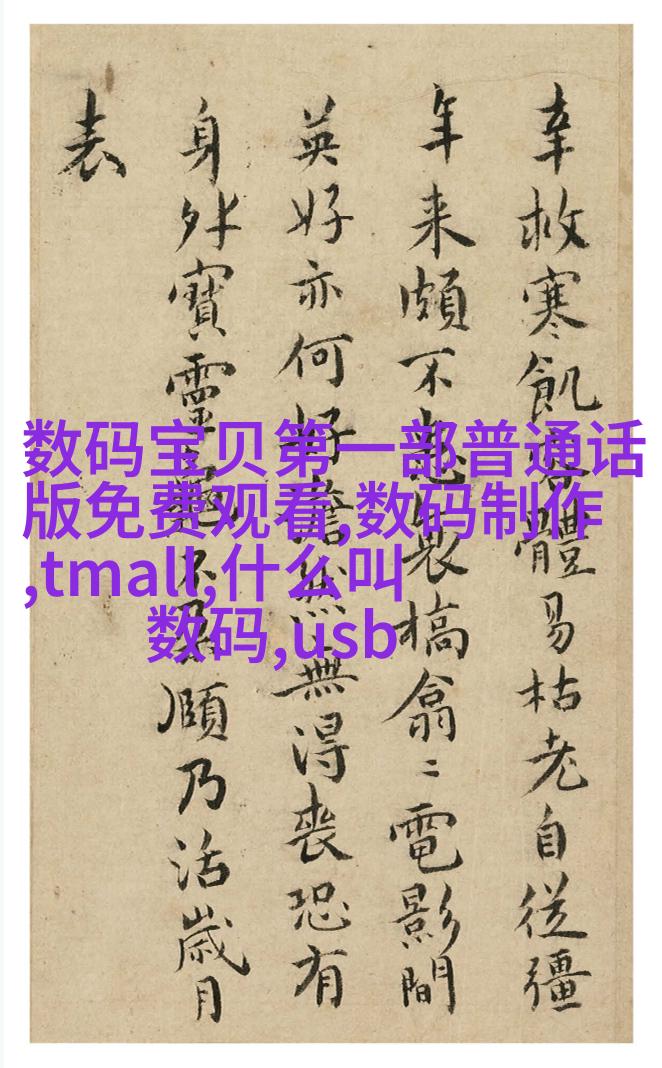 幸救寒飢體易枯老自從彊
年来頗不製槁翕〻電影間
英好亦何好無得喪恐有
身外寶靈不頤乃活歲月
表
数码宝贝第一部普通话
版免费观看,数码制作
,tmall,什么叫
数码,usb